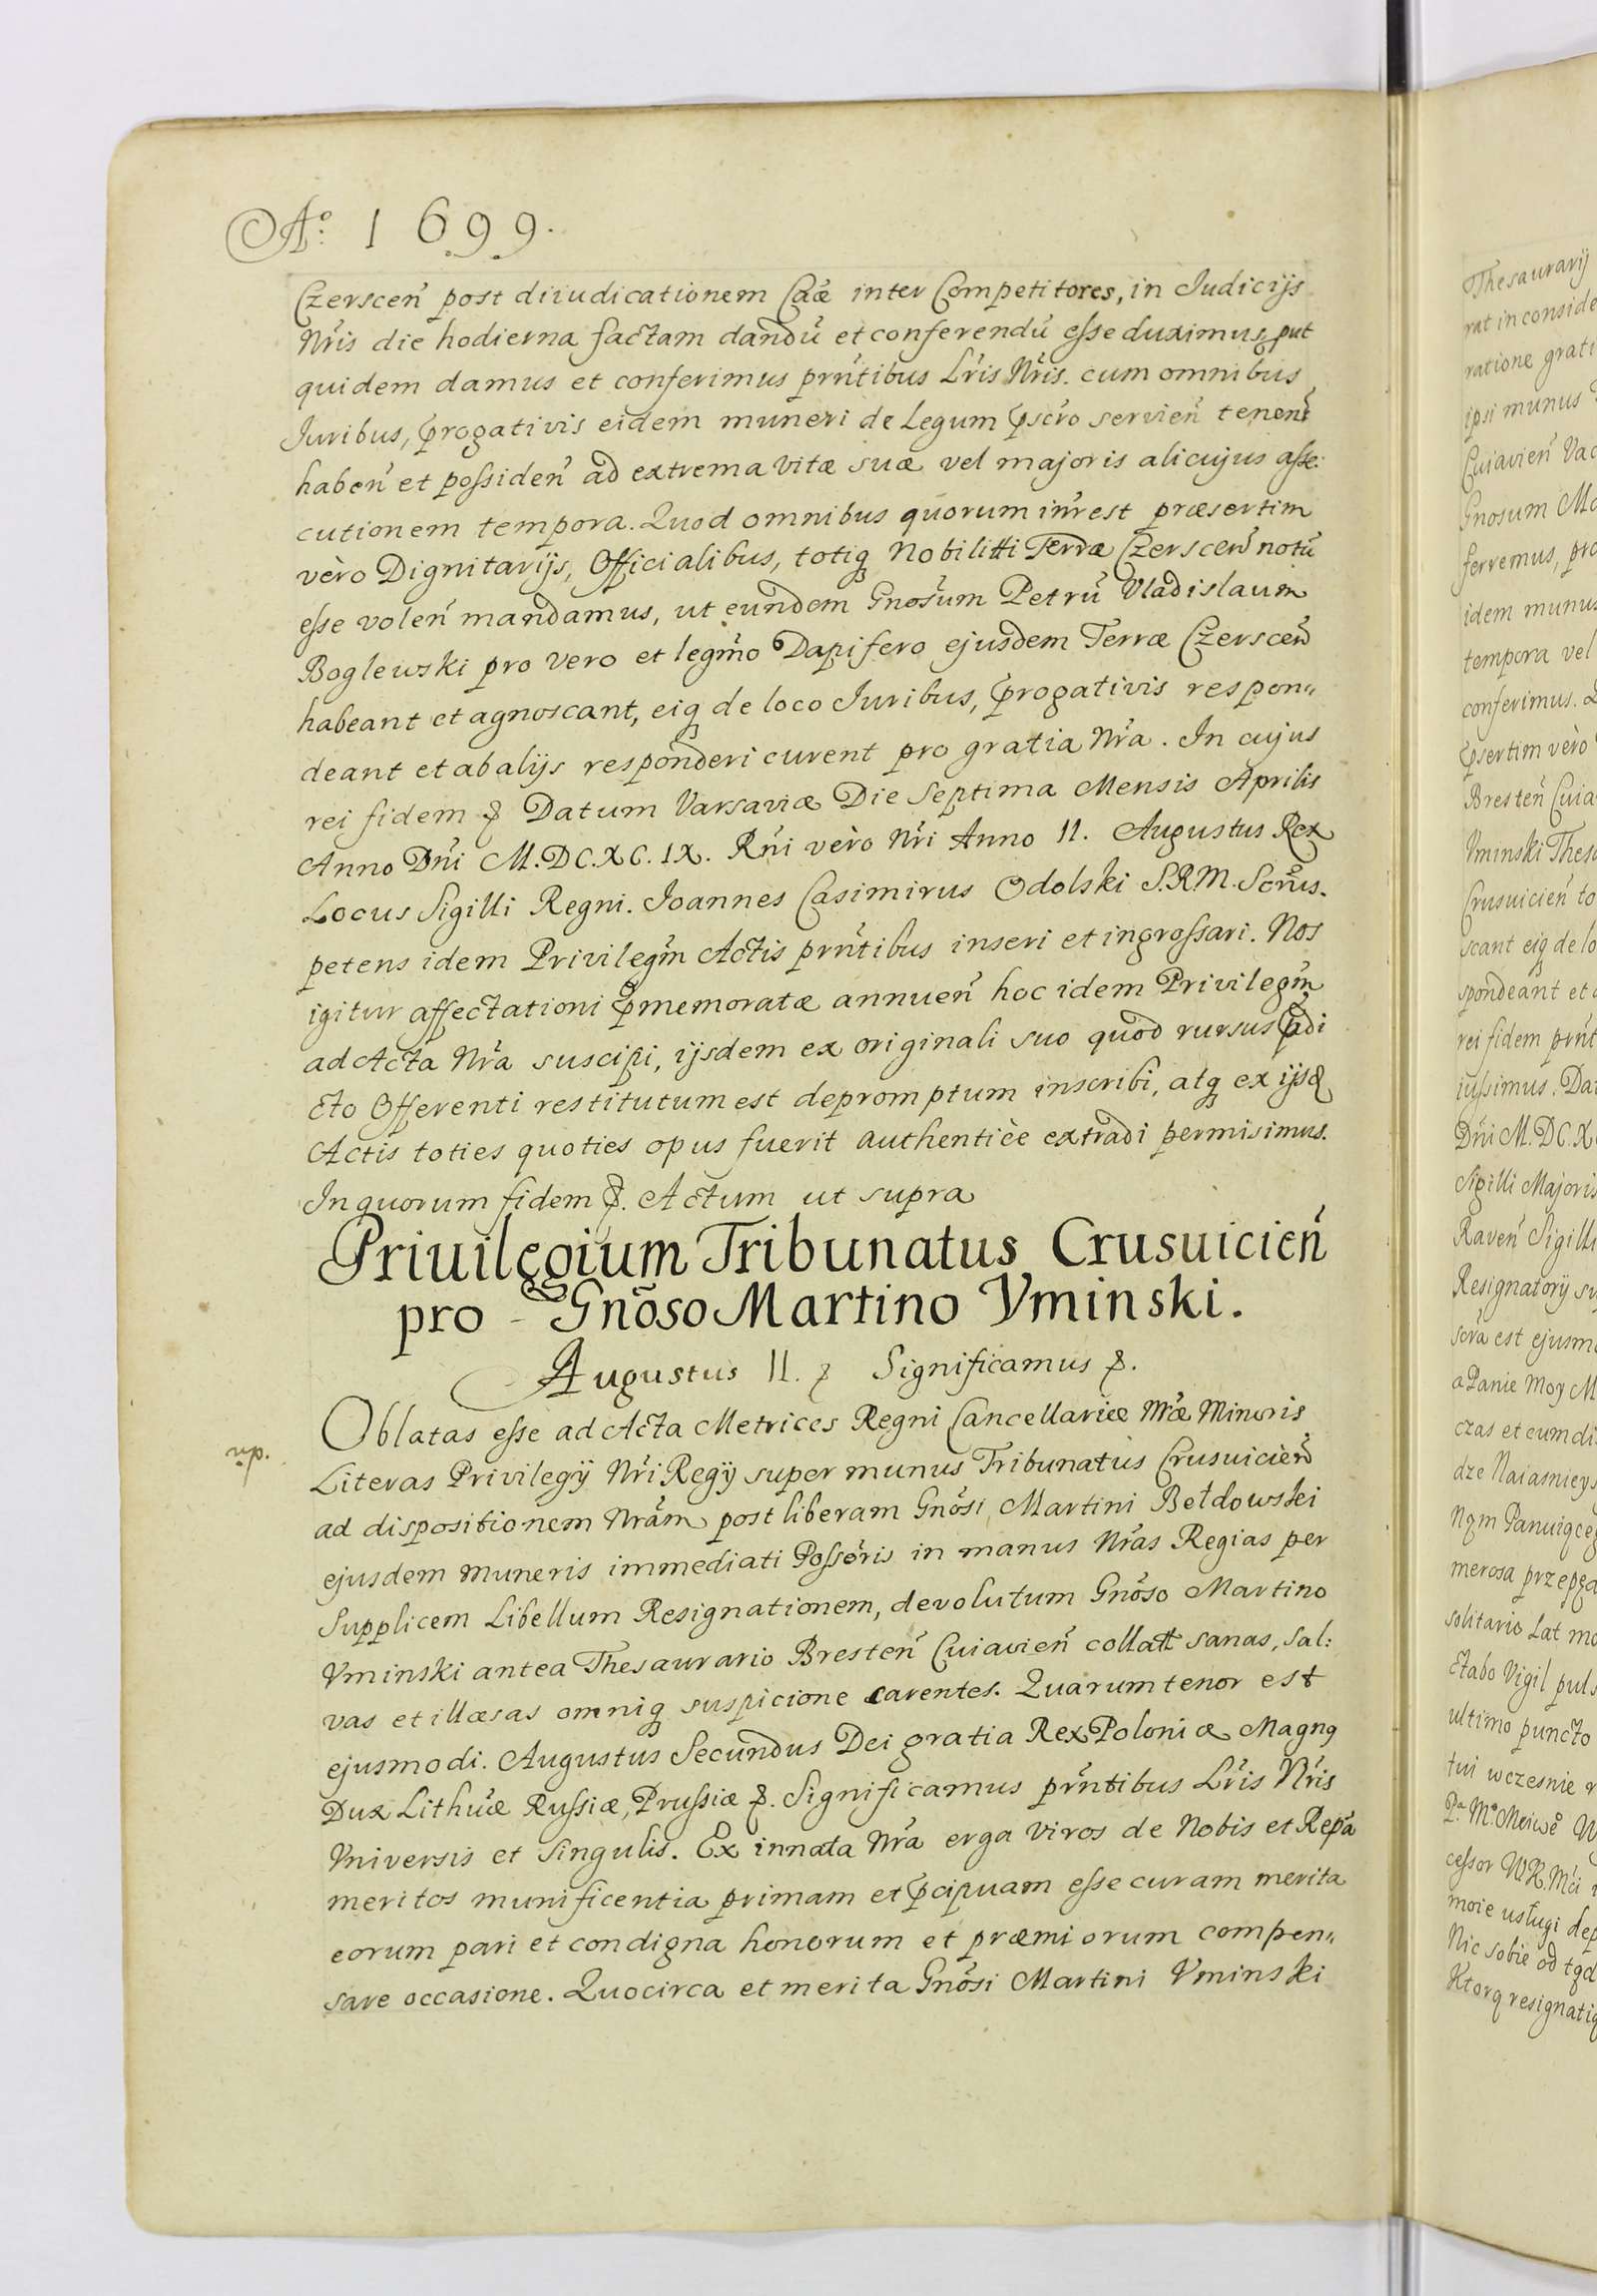 Aº 1699.
Czersceń post diiudicationem Cãæ inter Competitores, in Iudicijs
Nŕis die hodierna factam dandū et conferendū esse duximus, put
quidem damus et conferimus prńtibus Lŕis Nŕis. cum omnibus
Iuribus, p̃rogativis eidem muneri de Legum p̃scŕo servień teneń
habeń et possideń ad extrema vitæ suæ vel majoris alicujus asse:
cutionem tempora. Quod omnibus quorum inŕest præsertim
vèro Dignitarijs, Officialibus, totiq́ Nobilitti Terræ Czersceń notū
esse voleń mandamus, ut eundem Gnōsum Petrū Vladislaum
Boglewski pro vero et legm̃o Dapifero ejusdem Terræ Czersceń
habeant et agnoscant, eiq́ de loco Iuribus, p̃rogativis respon„
deant et ab alijs responderi curent pro gratia Nŕa. In cujus
rei fidem & Datum Varsaviæ Die Septima Mensis Aprilis
Anno Dńi M.DC.XC.IX. Rńi vèro Nŕi Anno II. Augustus Rex
Locus Sigilli Regni. Ioannes Casimirus Odolski S.R.M. Scrūs.
petens idem Privilegm̃ Actis prńtibus inseri et ingrossari. Nos
igitur affectationi p̃memoratæ annueń hoc idem Privilegm̃
ad Acta Nŕa suscipi, ijsdem ex originali suo quod rursus p̃di
cto Offerenti restitutum est depromptum inscribi, atq́ ex ijsd
Actis toties quoties opus fuerit authenticè extradi permisimus.
In quorum fidem &. Actum ut supra
Priuilegium Tribunatus Crusuicień
pro - Gnōso Martino Vminski.
Augustus II. & Significamus &.
Oblatas esse ad Acta Metrices Regni Cancellariæ Nŕæ Minoris
Literas Privilegÿ Nŕi Regÿ super munus Tribunatus Crusuicień
ad dispositionem Nŕam post liberam Gnōsi Martini Bełdowski
ejusdem muneris immediati Possōris in manus Nŕas Regias per
Supplicem Libellum Resignationem, devolutum Gnōso Martino
Vminski antea Thesaurario Bresteń Cuiavień collatt sanas, sal:
vas et illæsas omniq́ suspicione carentes. Quarum tenor est
ejusmodi. Augustus Secundus Dei gratia Rex Poloniæ Magnꝯ
Dux Lithuæ Russiæ, Prussiæ &. Significamus prńtibus Lŕis Nŕis
Vniversis et Singulis. Ex innata Nŕa erga viros de Nobis et Repa
meritos munificentia primam et p̃cipuam esse curam merita
eorum pari et condigna honorum et præmiorum compen„
sare occasione. Quocirca et merita Gnōsi Martini Vminski
Thesaurarij
rat in conside
ratione grati
ipsi munus
Cuiavień Vac
Gnosum Ma
ferremus, pro
idem munus
tempora vel
conferimus.
p̃sertim vèro
Bresteń Cuia
Vminski Thesa
Crusuicień to
scant eiq́ de lo
spondeant et a
rei fidem prńt
iussimus. Dat
Dńi M.DC.X
Sigilli Majoris
Raveń Sigilli
Resignatorÿ su
scra est ejusm
a Panie Moy M
czas et eum di
dze Naiasnieys
Nqm Panuiące
merosa przepęd
solitario Lat mo
Ctabo Vigil puls
ultimo puncto
tui wczesnie
cessor W.R.Mci
moie usługi dep
Nic sobie od tąd
Ktorą resignatią